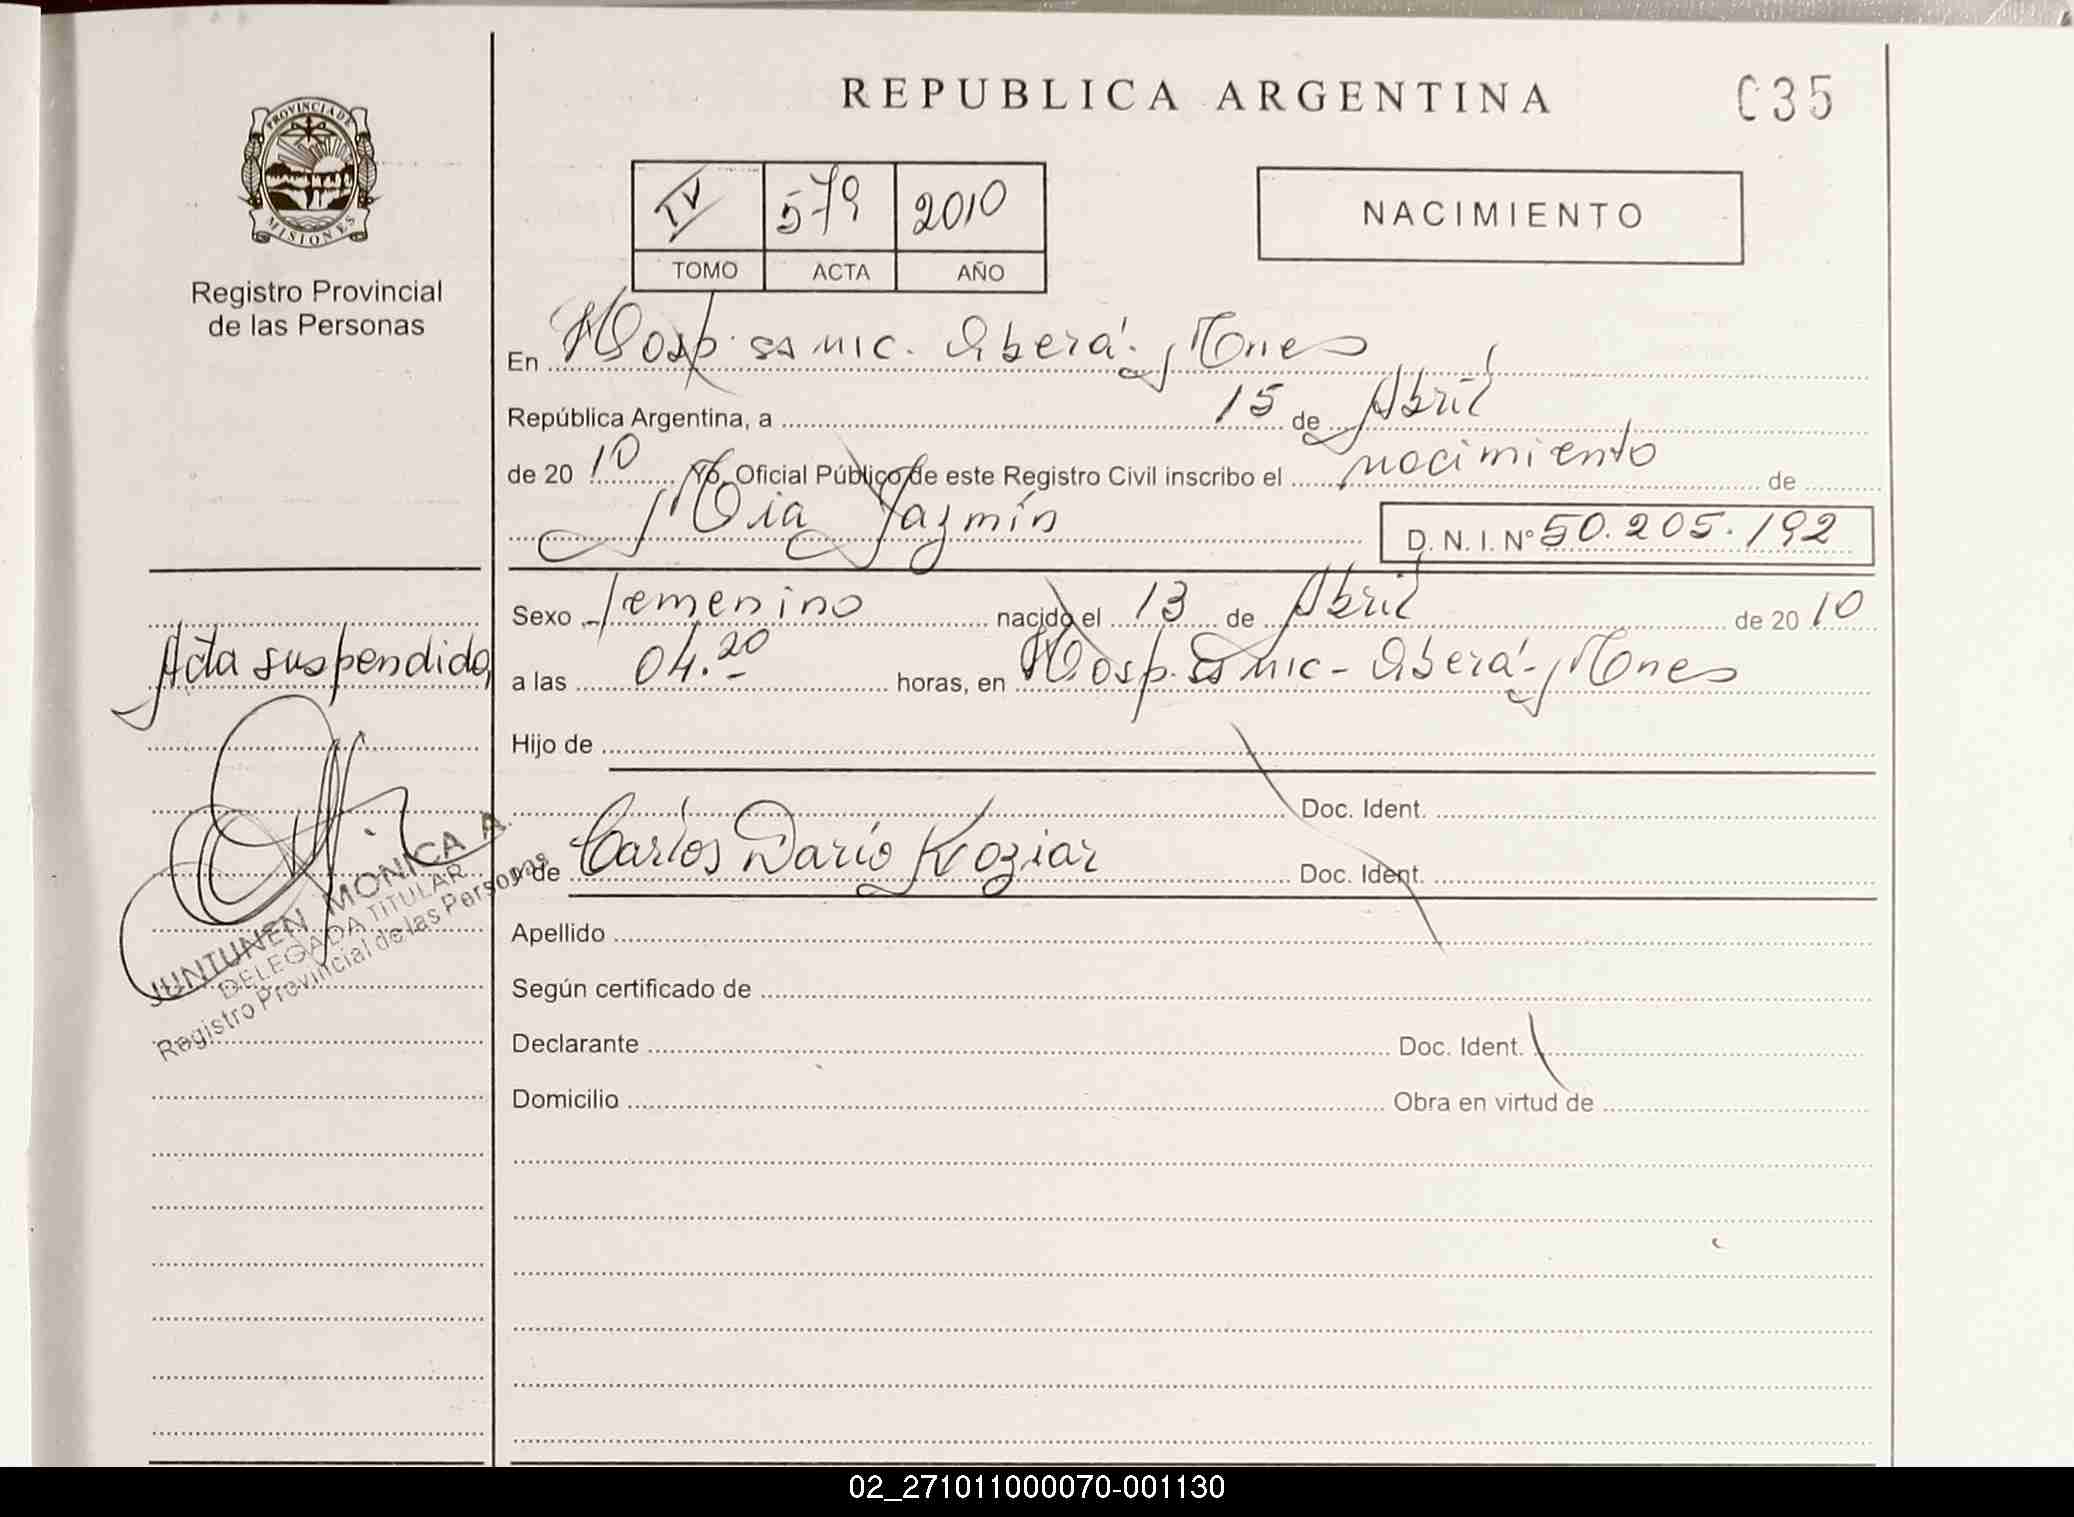 REPUBLICA ARGENTINA
C35
PROVINCIA DE
MISIONES
Registro Provincial
de las Personas
IV 579 2010
TOMO ACTA AÑO
NACIMIENTO
En Hosp. SAMIC. Oberá. Mnes
República Argentina, a 15 de Abril
de 20 10 Yo, Oficial Público de este Registro Civil inscribo el nacimiento de
Mia Jazmín D. N. I. Nº 50.205.192
Sexo femenino nacido el 13 de Abril de 20 10
a las 04.20 horas, en Hosp. SAMIC - Oberá - Mnes
Hijo de
Doc. Ident.
y de Carlos Darío Koziar Doc. Ident.
Apellido
Según certificado de
Declarante Doc. Ident.
Domicilio Obra en virtud de
Acta suspendida
JUNTUNEN MONICA A.
DELEGADA TITULAR
Registro Provincial de las Personas
02_271011000070-001130